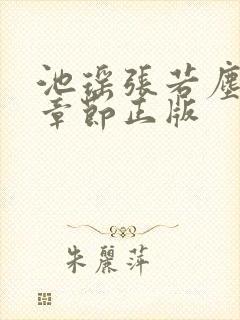 池瑶張若塵
章節正版
朱麗萍